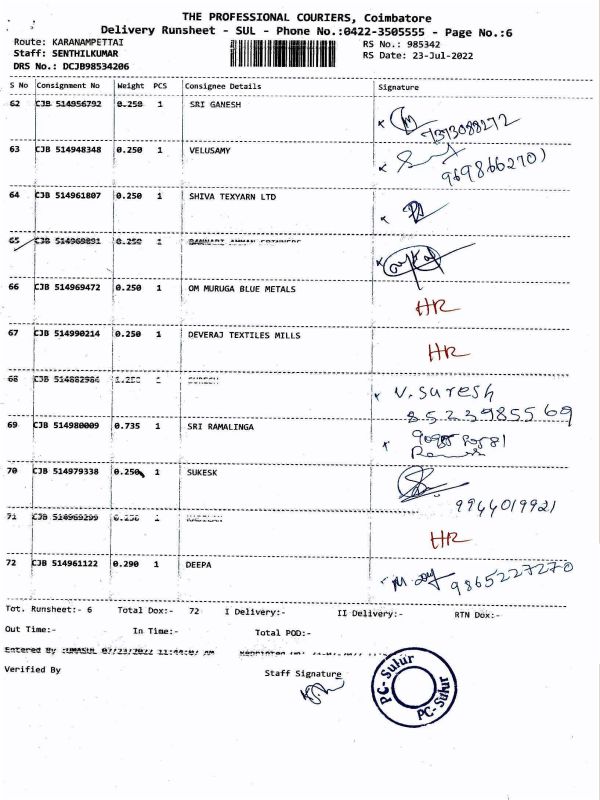 THE PROFESSIONAL COURIERS, Coimbatore
Delivery Runsheet - SUL - Phone No.:0422-3505555 - Page No.:6
Route: KARANAMPETTAI RS No.: 985342
Staff: SENTHILKUMAR RS Date: 23-Jul-2022
DRS No.: DCJB98534206
S No Consignment No Weight PCS Consignee Details Signature
62 CJB 514956792 0.250 1 SRI GANESH
7373088272
63 CJB 514948348 0.250 1 VELUSAMY
9698662701
64 CJB 514961807 0.250 1 SHIVA TEXYARN LTD
65 CJB 514969891 0.250 1
66 CJB 514969472 0.250 1 OM MURUGA BLUE METALS
HR
67 CJB 514990214 0.250 1 DEVERAJ TEXTILES MILLS
HR
68 CJB 514882984 1 SURESH
V. Suresh
8523985569
69 CJB 514980009 0.735 1 SRI RAMALINGA
70 CJB 514979338 0.250 1 SUKESK
9944019921
71 CJB 514969299 1
HR
72 CJB 514961122 0.290 1 DEEPA
9865227270
Tot. Runsheet:- 6 Total Dox:- 72 I Delivery:- II Delivery:- RTN Dox:-
Out Time:- In Time:- Total POD:-
Entered By 07/23/2022 11:44:07 AM
Verified By Staff Signature
PC- Sulur
PC- Sulur